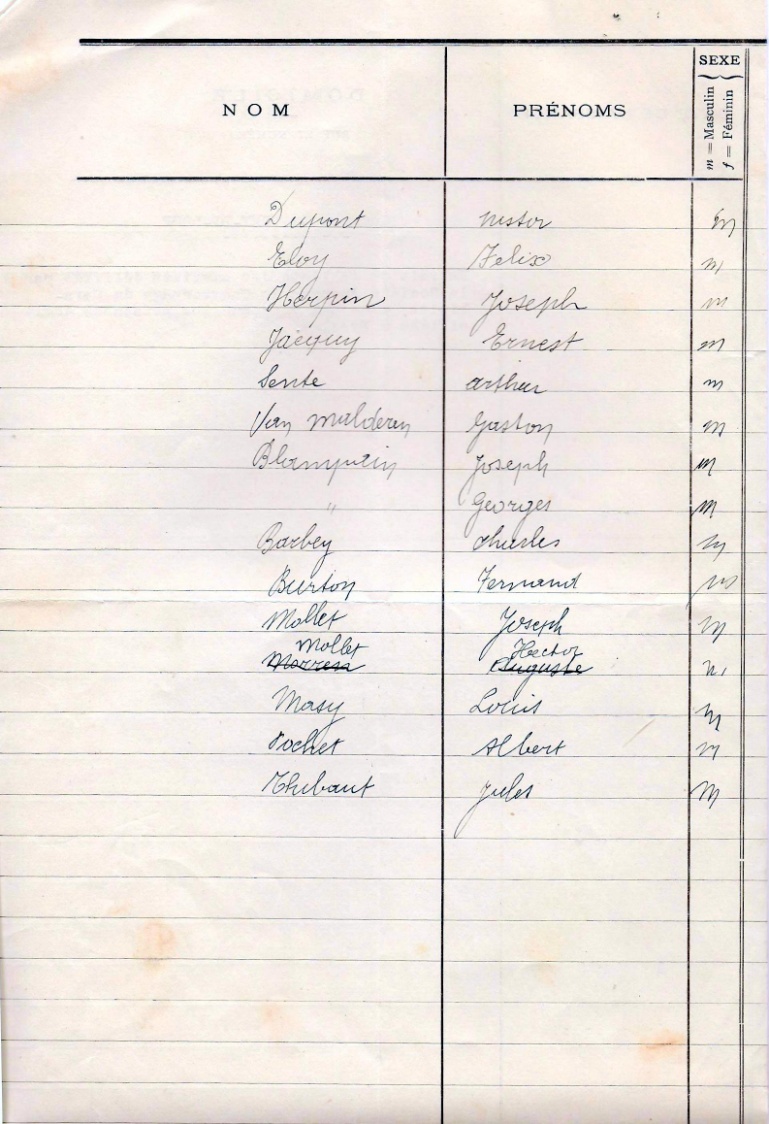 NOM PRÉNOMS SEXE
m = Masculin
f = Féminin
Dupont Nestor m
Eloy Felix m
Herpin Joseph m
Jacquy Ernest m
Sente arthur m
Van Malderen Gaston m
Blampain Joseph m
" Georges m
Barbey Charles m
Burton Fernand m
Mollet Joseph m
Mollet Hector
Auguste m
Masy Louis m
Pochet Albert m
Thibaut Jules m